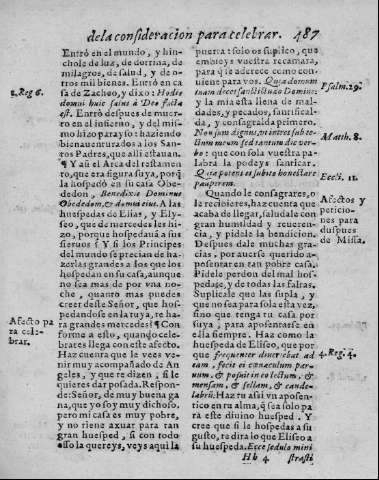 de la consideracion para celebrar. 487
Entrò en el mundo, y hin-
chole de luz, de dotrina, de
milagros, de salud, y de o-
tros mil bienes. Entrò en ca
sa de Zacheo, y dixo: Hodie
domui huic salus à Deo facta
est. Entrò despues de muer-
to en el infierno, y del mis-
mo hizo parayso: haziendo
bienaventurados a los San-
tos Padres, que alli estauan.
¶ Y assi el Arca del testamen-
to, que era figura suya, porq̃
la hospedò en su casa Obe-
dedon, Benedixit Dominus
Obededom, & domui eius. A las
huespedas de Elias, y Ely-
seo, que de mercedes les hi-
zo, porque hospedauã a sus
sieruos? Y si los Principes
del mundo se precian de ha-
zerlas grandes a los que los
hospedan en su casa, aunque
no sea mas de por vna no-
che, quanto mas puedes
creer deste Señor, que hos-
pedandose en la tuya, te ha-
ra grandes mercedes? ¶ Con
forme a esto, quando cele-
brares llega con este afecto.
Haz cuenta que le vees ve-
nir muy acompañado de An
geles, y que te dizen, si le
quieres dar posada. Respon-
de: Señor, de muy buena ga
na, que yo soy muy dichoso,
pero mi casa es muy pobre,
y no tiene axuar para tan
gran huesped, si con todo
esso la quereys, veys aqui la
2. Reg 6.
Afecto pa
ra cele-
brar.
puerta: solo os suplico, que
embieys vuestra recamara,
para q̃ se aderece como con-
uiene para vos. Quia domum
tuam decet sanctitudo Domine:
y la mia està llena de mal-
dades, y pecados, santifical-
da, y consagralda primero.
Non sum dignus, vt intres sub te-
ctum meum sed tantum dic ver-
bo: que con sola vuestra pa-
labra la podeys santificar.
Quia potens es subito honestare
pauperem.
Quando le consagrares, o
le recibieres, haz cuenta que
acaba de llegar, saludale con
gran humildad y reuerencia,
y pidele la bendicion.
Despues dale muchas gra-
cias, por auerse querido a-
posentar en tan pobre casa.
Pidele perdon del mal hos-
pedaje, y de todas las faltas.
Suplicale que las supla, y
que no sea para sola esta vez,
sino que tenga tu casa por
suya, para aposentarse en
ella siempre. Haz como la
huespeda de Eliseo, que por
que frequenter diuertebat ad
eam, fecit ei cœnaculum par-
uum, & posuit in eo lectum, &
mensam, & sellam, & cande-
labrũ. Haz tu assi vn aposen-
to rico en tu alma, q̃ sea solo pa
ra este diuino huesped. Y
cree que si le hospedas a su
gusto, te dira lo que Eliseo a
su huespeda. Ecce sedule mini
Psalm. 29.
Matth. 8.
Eccli. 11.
Afectos y
peticio-
nes para
despues
de Missa.
4. Reg. 4.
Hh 4 strasti